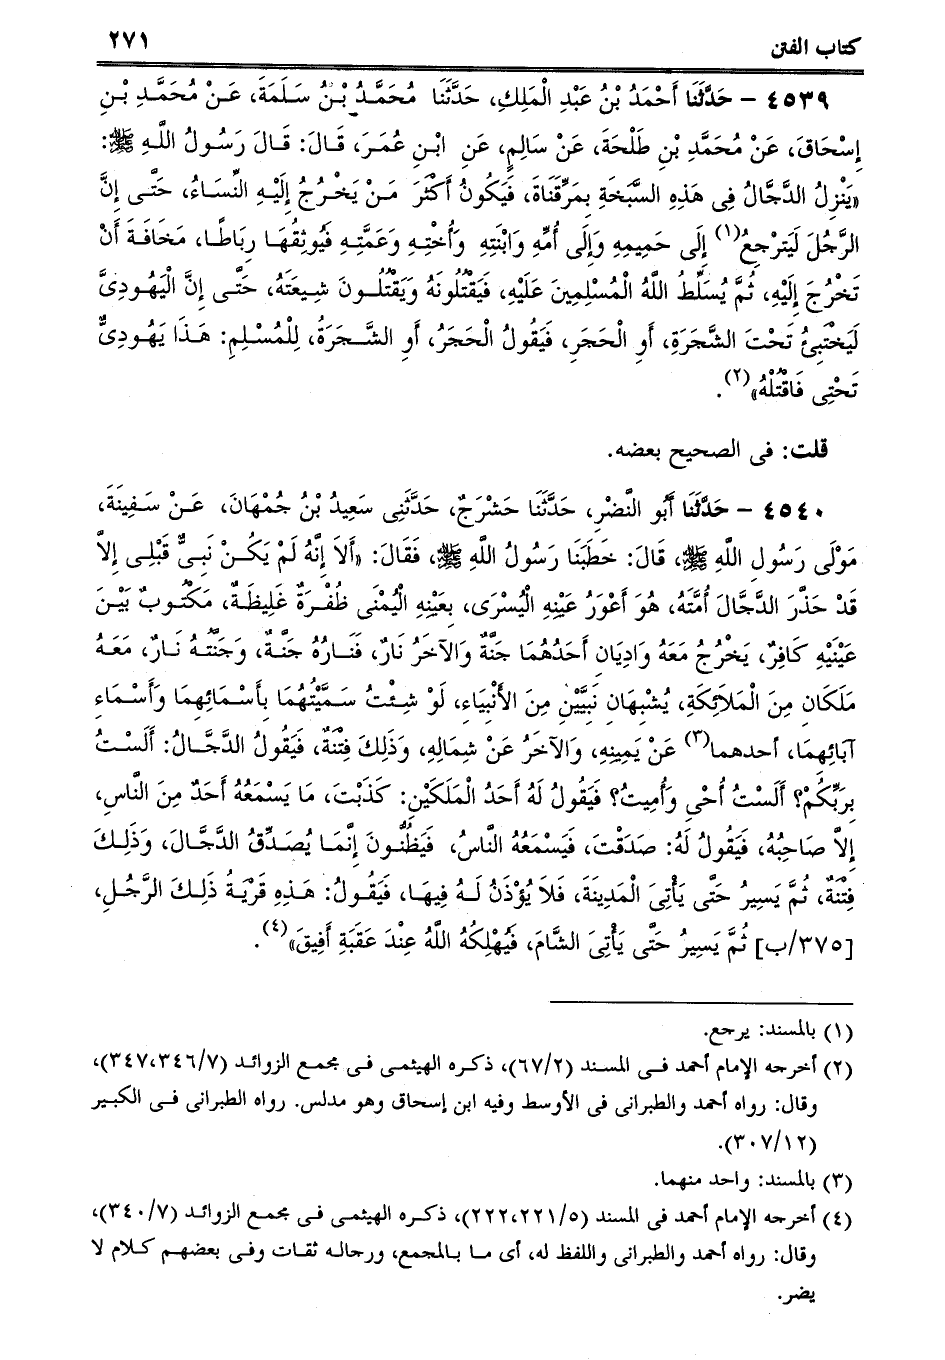 كتاب الفتن ٢٧١
٤٥٣٩ - حَدَّثَنَا أَحْمَدُ بْنُ عَبْدِ الْمَلِكِ، حَدَّثَنَا مُحَمَّدُ بْنُ سَلَمَةَ، عَنْ مُحَمَّدِ بْنِ
إِسْحَاقَ، عَنْ مُحَمَّدِ بْنِ طَلْحَةَ، عَنْ سَالِمٍ، عَنِ ابْنِ عُمَرَ، قَالَ: قَالَ رَسُولُ اللَّهِ ﷺ:
«يَنْزِلُ الدَّجَّالُ فِى هَذِهِ السَّبَخَةِ بِمَرِّقَنَاةَ، فَيَكُونُ أَكْثَرَ مَنْ يَخْرُجُ إِلَيْهِ النِّسَاءُ، حَتَّى إِنَّ
الرَّجُلَ لَيَتَرْجِعُ(١) إِلَى حَمِيمِهِ وَإِلَى أُمِّهِ وَابْنَتِهِ وَأُخْتِهِ وَعَمَّتِهِ فَيُوثِقُهَا رِبَاطًا، مَخَافَةَ أَنْ
تَخْرُجَ إِلَيْهِ، ثُمَّ يُسَلِّطُ اللَّهُ الْمُسْلِمِينَ عَلَيْهِ، فَيَقْتُلُونَهُ وَيَقْتُلُونَ شِيعَتَهُ، حَتَّى إِنَّ الْيَهُودِىَّ
لَيَخْتَبِئُ تَحْتَ الشَّجَرَةِ، أَوِ الْحَجَرِ، فَيَقُولُ الْحَجَرُ، أَوِ الشَّجَرَةُ، لِلْمُسْلِمِ: هَذَا يَهُودِىٌّ
تَحْتِى فَاقْتُلْهُ»(٢).
قلت: فى الصحيح بعضه.
٤٥٤٠ - حَدَّثَنَا أَبُو النَّضْرِ، حَدَّثَنَا حَشْرَجٌ، حَدَّثَنِى سَعِيدُ بْنُ جُمْهَانَ، عَنْ سَفِينَةَ،
مَوْلَى رَسُولِ اللَّهِ ﷺ، قَالَ: خَطَبَنَا رَسُولُ اللَّهِ ﷺ، فَقَالَ: «أَلاَ إِنَّهُ لَمْ يَكُنْ نَبِىٌّ قَبْلِى إِلاَّ
قَدْ حَذَّرَ الدَّجَّالَ أُمَّتَهُ، هُوَ أَعْوَرُ عَيْنِهِ الْيُسْرَى، بِعَيْنِهِ الْيُمْنَى ظُفْرَةٌ غَلِيظَةٌ، مَكْتُوبٌ بَيْنَ
عَيْنَيْهِ كَافِرٌ، يَخْرُجُ مَعَهُ وَادِيَانِ أَحَدُهُمَا جَنَّةٌ وَالآخَرُ نَارٌ، فَنَارُهُ جَنَّةٌ، وَجَنَّتُهُ نَارٌ، مَعَهُ
مَلَكَانِ مِنَ الْمَلاَئِكَةِ، يُشْبِهَانِ نَبِيَّيْنِ مِنَ الأَنْبِيَاءِ، لَوْ شِئْتُ سَمَّيْتُهُمَا بِأَسْمَائِهِمَا وَأَسْمَاءِ
آبَائِهِمَا، أحدهما(٣) عَنْ يَمِينِهِ، وَالآخَرُ عَنْ شِمَالِهِ، وَذَلِكَ فِتْنَةٌ، فَيَقُولُ الدَّجَّالُ: أَلَسْتُ
بِرَبِّكُمْ؟ أَلَسْتُ أُحْىِ وَأُمِيتُ؟ فَيَقُولُ لَهُ أَحَدُ الْمَلَكَيْنِ: كَذَبْتَ، مَا يَسْمَعُهُ أَحَدٌ مِنَ النَّاسِ،
إِلاَّ صَاحِبُهُ، فَيَقُولُ لَهُ: صَدَقْتَ، فَيَسْمَعُهُ النَّاسُ، فَيَظُنُّونَ إِنَّمَا يُصَدِّقُ الدَّجَّالَ، وَذَلِكَ
فِتْنَةٌ، ثُمَّ يَسِيرُ حَتَّى يَأْتِىَ الْمَدِينَةَ، فَلاَ يُؤْذَنُ لَهُ فِيهَا، فَيَقُولُ: هَذِهِ قَرْيَةُ ذَلِكَ الرَّجُلِ،
[٣٧٥/ب] ثُمَّ يَسِيرُ حَتَّى يَأْتِىَ الشَّامَ، فَيُهْلِكُهُ اللَّهُ عِنْدَ عَقَبَةِ أَفِيقَ»(٤).
(١) بالمسند: يرجع.
(٢) أخرجه الإمام أحمد فى المسند (٦٧/٢)، ذكره الهيثمى فى مجمع الزوائد (٣٤٧،٣٤٦/٧)،
وقال: رواه أحمد والطبرانى فى الأوسط وفيه ابن إسحاق وهو مدلس. رواه الطبرانى فى الكبير
(٣٠٧/١٢).
(٣) بالمسند: واحد منهما.
(٤) أخرجه الإمام أحمد فى المسند (٢٢٢،٢٢١/٥)، ذكره الهيثمى فى مجمع الزوائد (٣٤٠/٧)،
وقال: رواه أحمد والطبرانى واللفظ له، أى ما بالمجمع، ورجاله ثقات وفى بعضهم كلام لا
يضر.